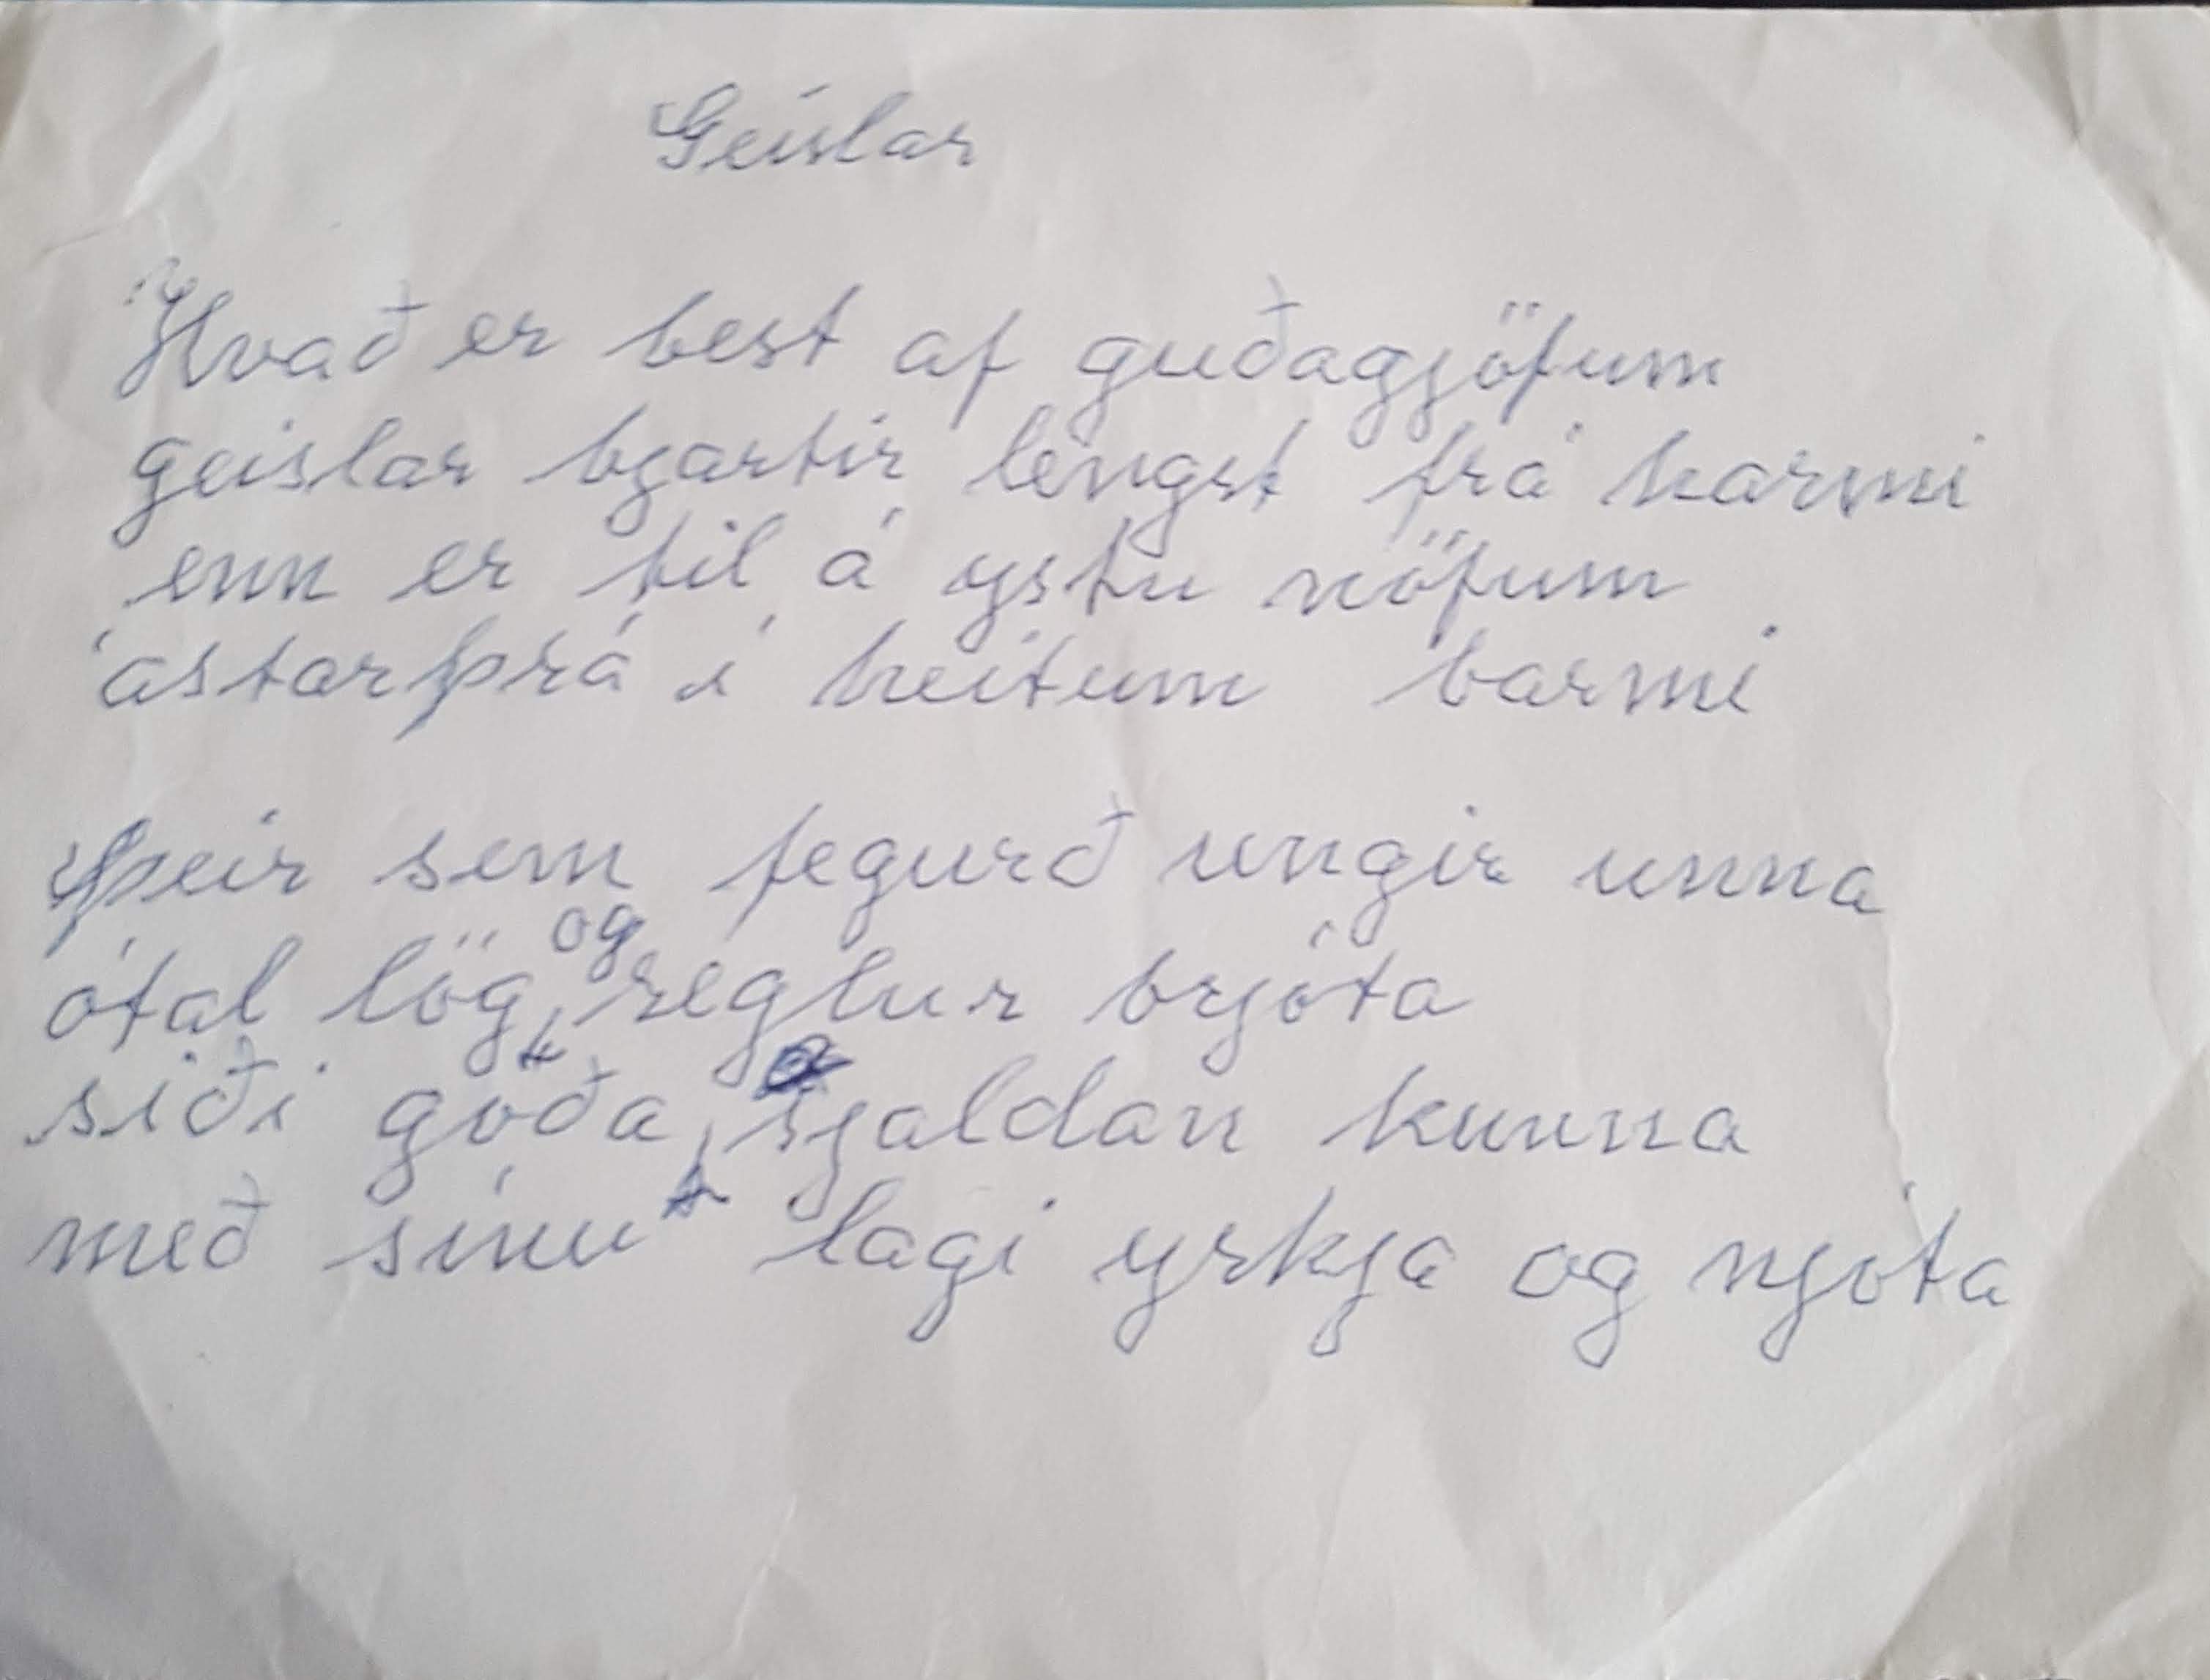 Geislar
Hvað er best af guðagjöfum
geislar bjartir lengst frá harmi
enn er til á ystu nöfum
ástarþrá í heitum barmi
Þeir sem fegurð ungir unna
ótal lög og reglur brjóta
siði góða, sjaldan kunna
með sínu lagi yrkja og njóta